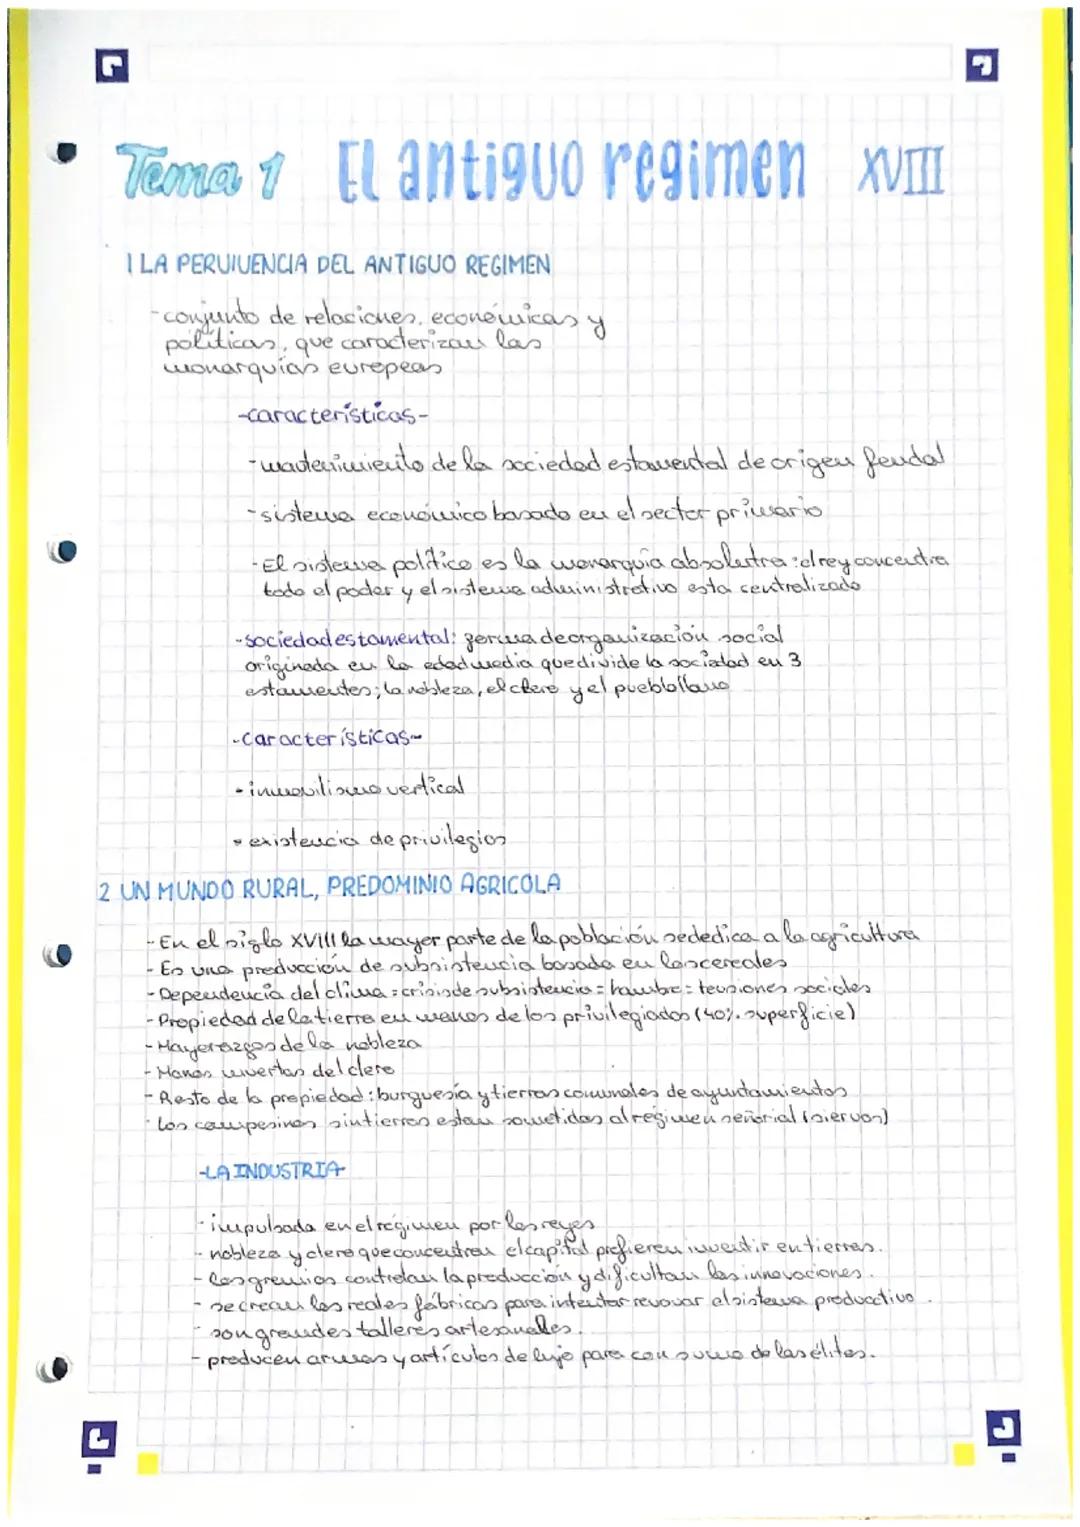 Tema 1 El antiguo regimen XVIII
1 LA PERVIVENCIA DEL ANTIGUO REGIMEN
-conjunto de relaciones, económicas y
políticas, que caracterizan las
monarquías europeas
-características-
-mantenimiento de la sociedad estamental de origen feudal
-sistema económico basado en el sector primario
-El sistema político es la monarquía absolutra: el rey concentra
todo el poder y el sistema administrativo esta centralizado
-sociedad estamental: forma de organización social
originada en la edad media que divide la sociedad en 3
estamentos; la nobleza, el clero y el pueblo llano
-características-
-inmovilismo vertical
-existencia de privilegios
2 UN MUNDO RURAL, PREDOMINIO AGRICOLA
-En el siglo XVIII la mayor parte de la población se dedica a la agricultura
-Es una producción de subsistencia basada en los cereales
-Dependencia del clima = crisis de subsistencia = hambre = tensiones sociales
-Propiedad de la tierra en manos de los privilegiados (40% superficie)
-Mayorazgos de la nobleza
-Manos muertas del clero
-Resto de la propiedad: burguesía y tierras comunales de ayuntamientos
-Los campesinos sin tierras estan sometidos al regimen señorial (siervos)
-LA INDUSTRIA-
-impulsada en el régimen por los reyes
-nobleza y clero que concentran el capital prefieren invertir en tierras.
-los gremios controlan la producción y dificultan las innovaciones.
-se crean las reales fábricas para intentar renovar el sistema productivo.
-son grandes talleres artesanales.
-producen armas y artículos de lujo para consumo de las élites.